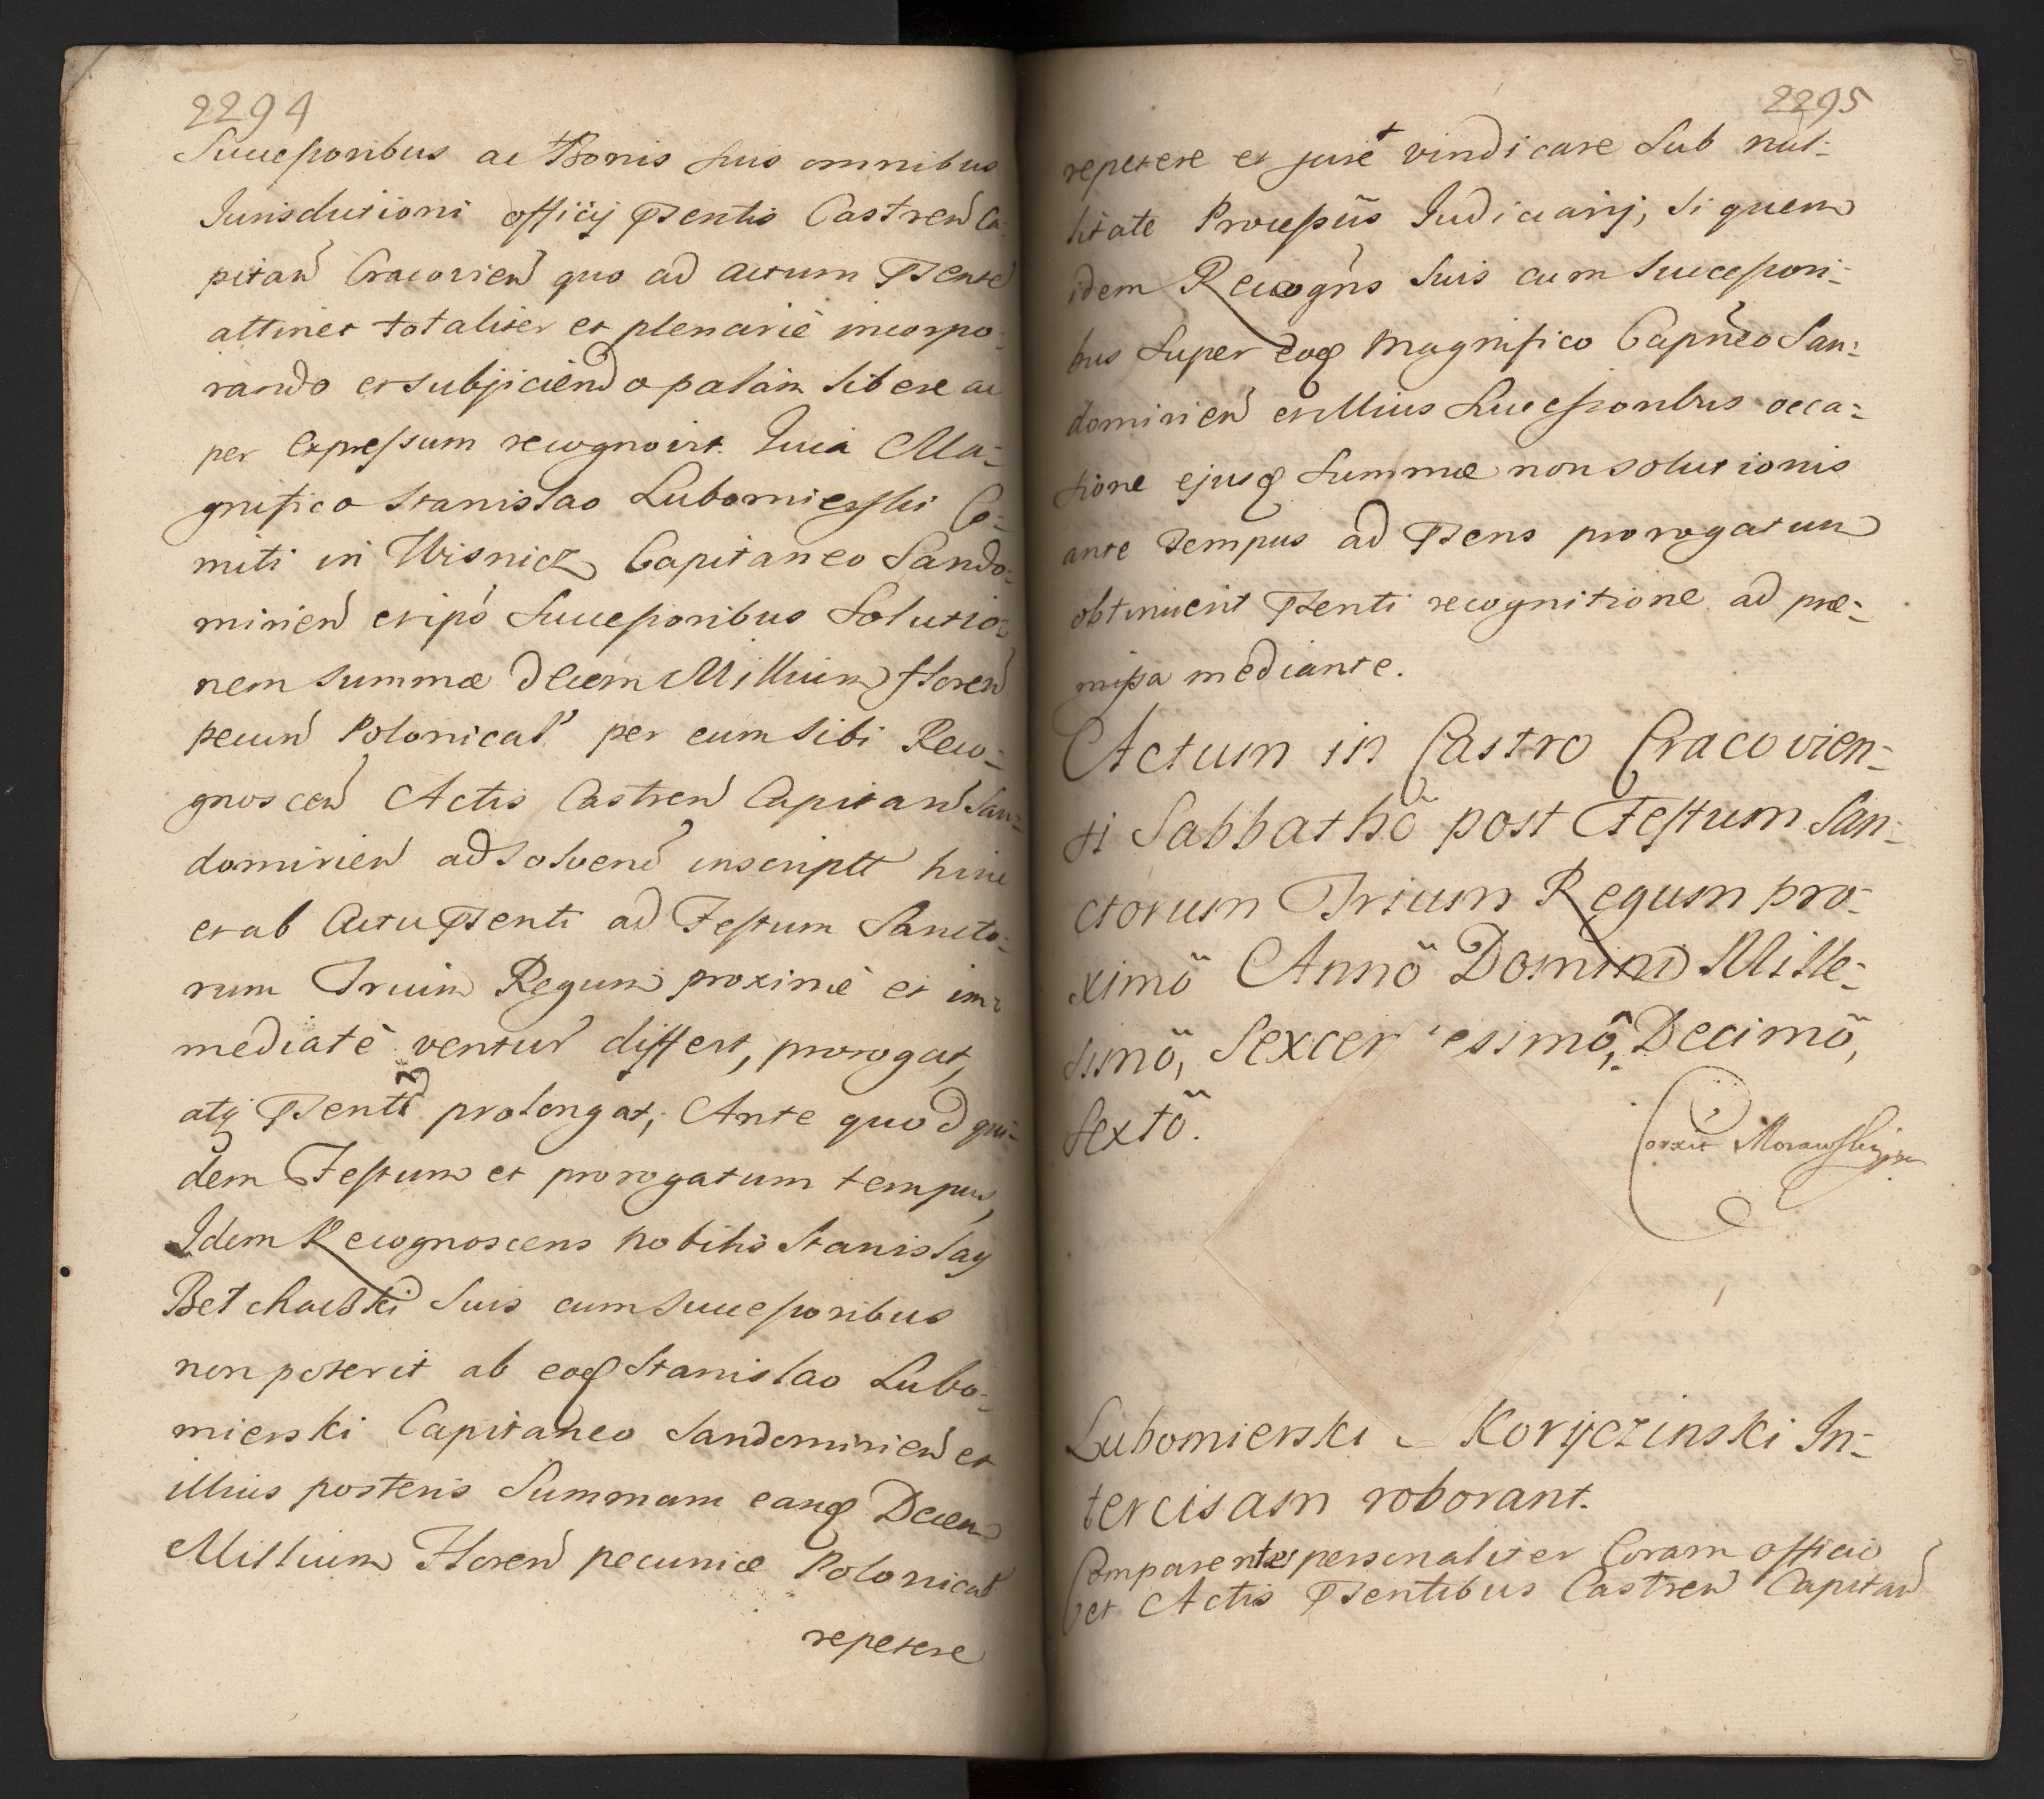 2294
Successoribus ac Bonis suis omnibus
Jurisdictioni officij Psentis Castren Ca-
pitan Cracovien quo ad actum Psente
attinet totaliter et plenariè incorpo-
rando et subjiciendo palàm libere ac
per Expressum recognovit. Quia Ma-
gnifico Stanislao Lubomierski Co-
miti in Wisnicz Capitaneo Sando-
mirien et ipō Successoribus Solutio-
nem summæ Decem Millium floren
pecun Polonical per eum sibi Reco-
gnoscen Actis Castren Capitan San-
domirien ad solvend inscriptt hinc
et ab Actu Psenti ad Festum Sancto-
rum Trium Regum proximè et im-
mediatè ventur differt, prorogat,
atq Psenti prolongat; Ante quod qui-
dem Festum et prorogatum tempus,
Idem Recognoscens Nobilis Stanislaq
Betchacski Suis cum Successoribus
non poterit ab eoq Stanislao Lubo-
mierski Capitaneo Sandomirien et
illius posteris Summam eanq Decem
Millium Floren pecuniæ Polonical
repetere
2295
repetere et jure vindicare Sub nul-
litate Processûs Judiciarij, Si quem
idem Recogñs Suis cum Successori-
bus Super eoq Magnifico Capñeo San-
domirien et illius Successoribus occa-
sione ejusq Summæ non solutionis
ante Tempus ad Psens prorogatum
obtinuerit Psenti recognitione ad præ-
missa mediante.
Actum in Castro Cracovien-
si Sabbathō post Festum San-
ctorum Trium Regum pro-
ximō Annō Domini Mille-
simō, Sexcen esimō, Decimō,
Sextō.
Corxit Morawski
Lubomierski Koryczinski In-
tercisam roborant.
Comparentes personaliter Coram officio
et Actis Psentibus Castren Capitan